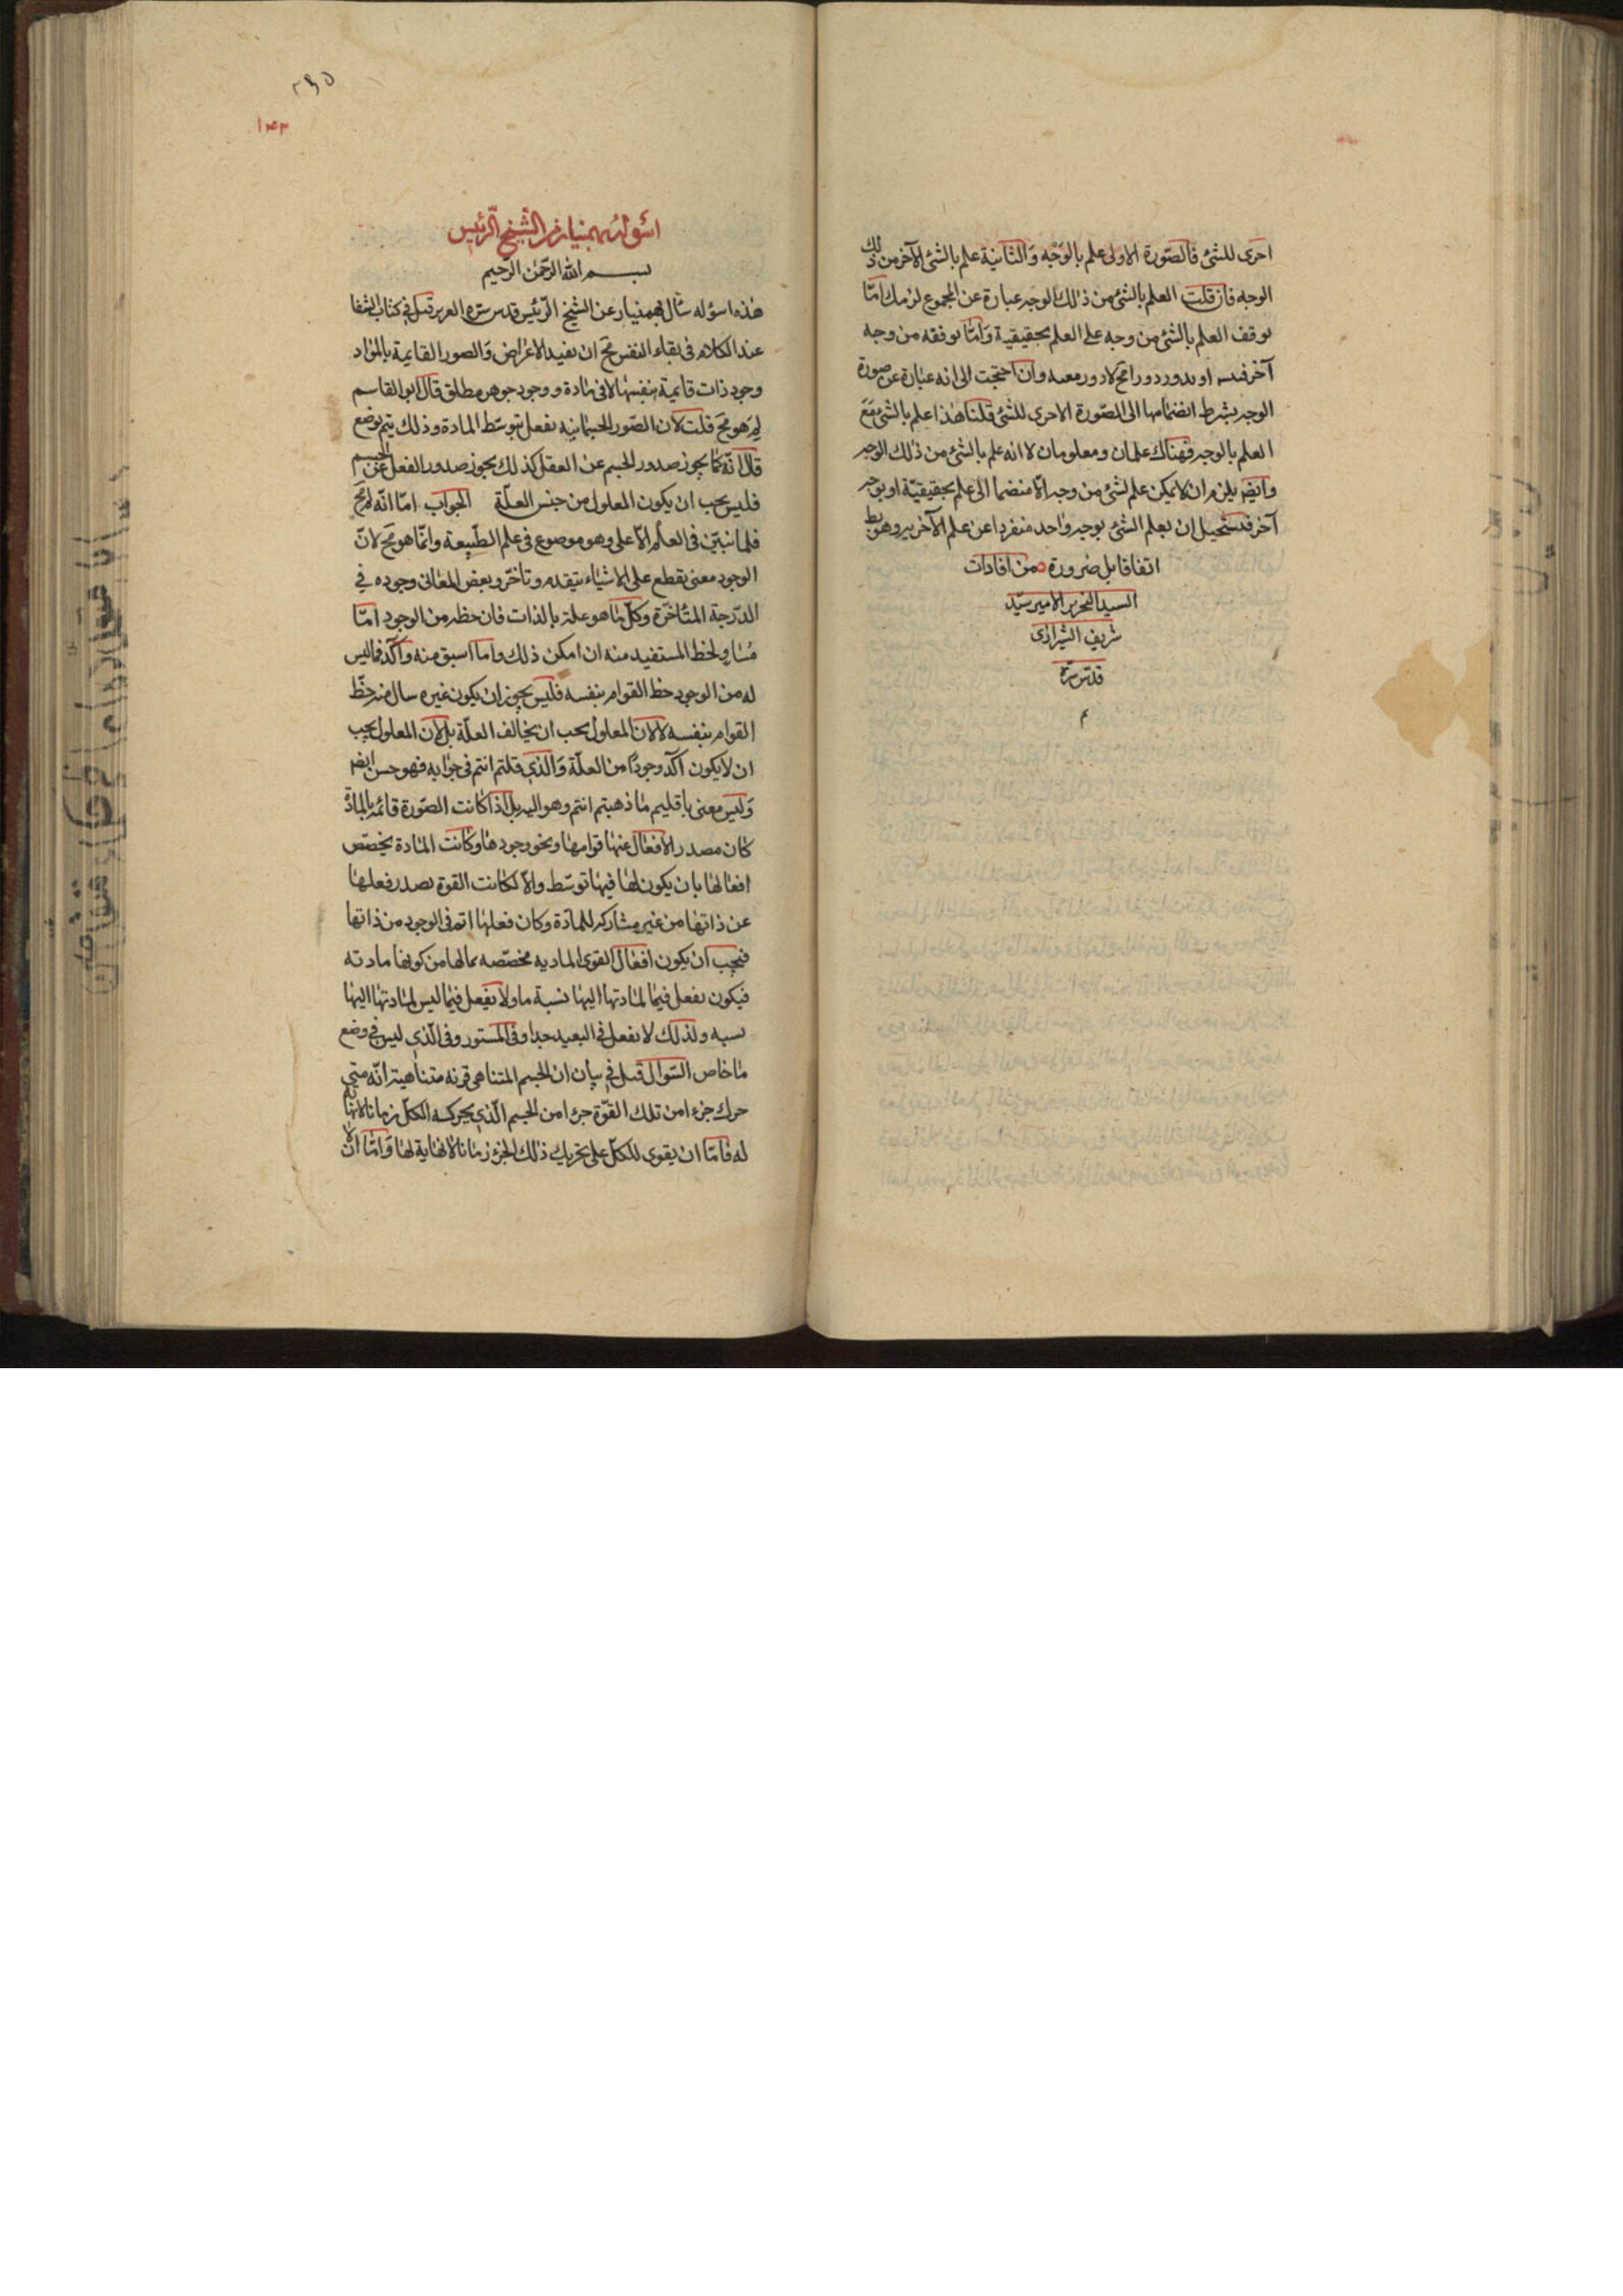 احرى للشئ فالصّورة الاولى علم بالوَجْه وَالثّانية علم بالشئ الآخر من ذلك
الوجه فان قلت العلم بالشئ من ذلك الوجه عبارة عن المجموع لزمك امّا
توقف العلم بالشئ من وجه على العلم بحقيقية وَامّا توقفه من وجه
آخر او يدور دورا مح لا دور معيه وان احتجت الى انه عبارة عن صورة
الوجه بشرط انضمامها الى الصّورة الاحرى للشئ قلنا هذا علم بالشئ مَعَ
العلم بالوجه فهناك علمان ومعلومان لا انه علم بالشئ من ذلك الوجه
وايضا يلزم ان لا يمكن علم لشئ من وجه الّا منضما الى علم بحقيقيّة او بوجه
آخر فيستحيل ان يعلم الشئ بوجه واحد منفردا عن علم الآخر به وهو بط
اتفاقا بل ضرورة من افادات
السيد النحرير الامير سيّد
شريف الشيرازى
قدّس سرّه
م
٢٩٥
١٤٣
اسؤلة بهمنيار من الشّيخ الرّئيس
بسم الله الرّحمن الرّحيم
هذه اسؤله سأل بهمنيار عن الشيخ الرّئيس قدس سرّه العزيز قيل في كتاب الشفا
عند الكلام فى بقاء النفس مح ان يفيد الاعراض وَالصور القايمة بالموَاد
وجود ذات قايمة بنفسها لا فى مادة ووجود جوهر مطلق قال ابو القاسم
لِمَ هو مح قلت لان الصّور الجسمانيه تفعل بتوسّط المادة وذلك يتم بوضع
قال انّه كما يجوز صدور الجسم عن العقل كذلك يجوز صدور الفعل عن الجسم
فليس يجب ان يكون المعلول من جنس العلّة الجواب امّا انّه لم مح
فلما نبيّن فى العلم الاعلى وهو موضوع فى علم الطّبيعة وانّما هو مح لانّ
الوجود معنى يقطع على الاشيَاء بتقدم وتأخّر وبعض المعانى وجوده في
الدّرجة المتأخّرة وكلّ ما هو علة بالذات فان حظه من الوجود امّا
مُسَاوٍ لحظ المستفيد منه ان امكن ذلك واما اسبق منه وآكد فما ليس
له من الوجود حظ القوام بنفسه فليس يجوز ان يكون غيره سال منه حظّ
القوام بنفسه لا لان المعلول يجب ان يخالف العلّة بل لان المعلول يجب
ان لا يكون آكد وجودًا من العلّة وَالّذي قلتم انتم فى جوابه فهو حسن ايضا
وَليس معنى ما ذهبتم انتم وهو اليه بل اذا كانت الصّورة قائمه بالمادّة
كان مصدر الافعال عنها قوامها ونحو وجودها وكانت المادة يخصّص
افعالها بان يكون لها فيها توسّط والّا لكانت القوة يصدر فعلها
عن ذاتها من غير مشاركه للمادّة وكان فعلها اتم فى الوجود من ذاتها
فيجب ان يكون افعال القوى الماديه مخصّصه بمالها من كونها ماديه
فيكون يفعل فيما لمادتها اليها نسبة ما ولا يفعل فيما ليس لمادتها اليها
نسبه ولذلك لا يفعل في البعيد جدا وفى المستور وفى الّذي ليس في وضع
ما خاص السّوال قيل في بيان ان الجسم المتناهى قوته متناهية انّه متى
حرك جزءا من تلك القوّة جزءا من الجسم الّذي يحركه الكلّ زمانا لا نهاية
له فامّا ان يقوى للكلّ على تحريك ذلك الجزء زمانا لا نهاية لها وَامّا ان لا